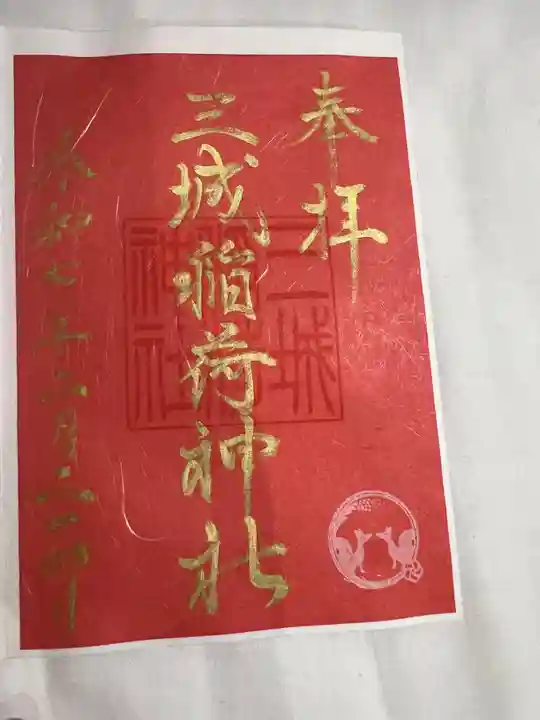 奉拝
三城稲荷神社
三城稲荷神社
令和七年二月